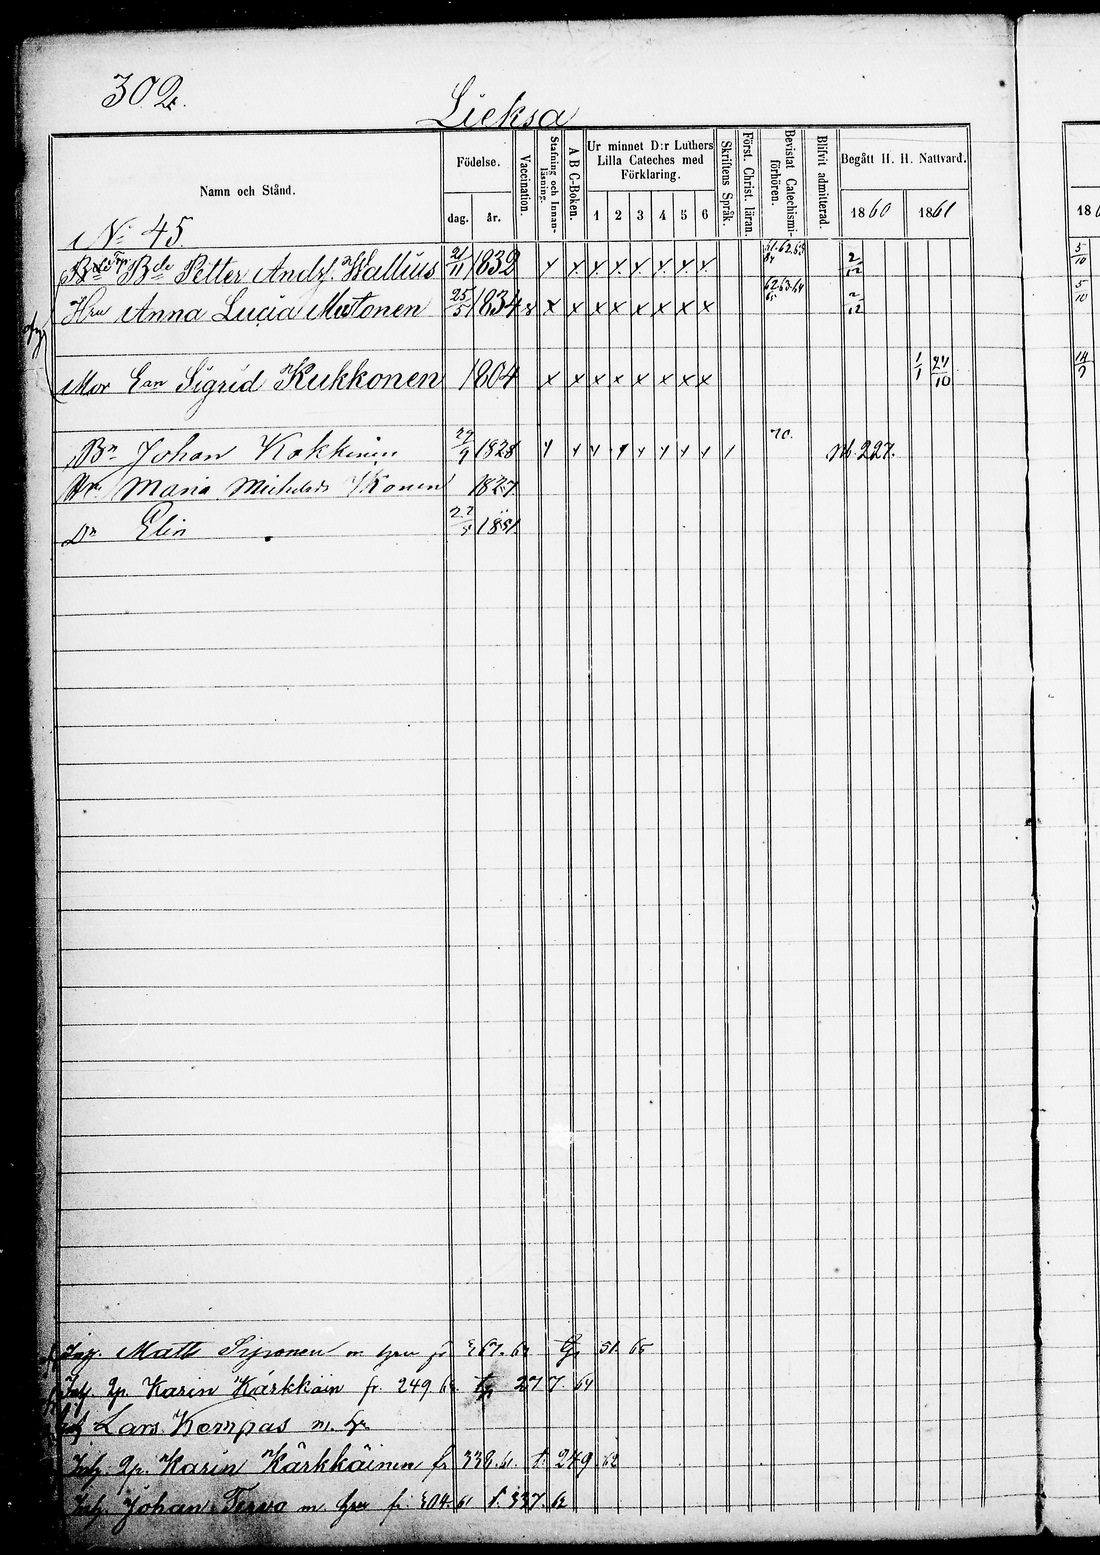 302.
Lieksa
Namn och Stånd.
Födelse.
dag. år.
Vaccination.
Stafning och Innanläsning.
A B C-Boken.
Ur minnet D:r Luthers Lilla Cateches med Förklaring.
1 2 3 4 5 6
Skriftens Språk.
Först. Christ. läran.
Bevistat Catechismiförhören.
Blifvit admitterad.
Begått H. H. Nattvard.
1860 1861
No 45
Bde Petter Andf. Wallius 21/11 1832 x x x x x x x x 61.62.63 2/12 5/10
Hru Anna Lucia Mustonen 25/5 1834 x x x x x x x x 62 63 64 65 2/12 5/10
Mor Ean Sigrid Kukkonen 1804 x x x x x x x x 1/1 27/10
Bn Johan Kokkinen 29/9 1828 70. 227.
Maria Michelsdr 1827
Dr Elin 1851
Matts m hru fr 367.
Inh. Karin Kärkkäin fr. 249 277. 64
Lars Kompas m. hr
Inh. Karin Kärkkäinen fr 338. 61 t. 249 62
Inh. Johan Tervo m hru fr 304. 61 t. 337. 62